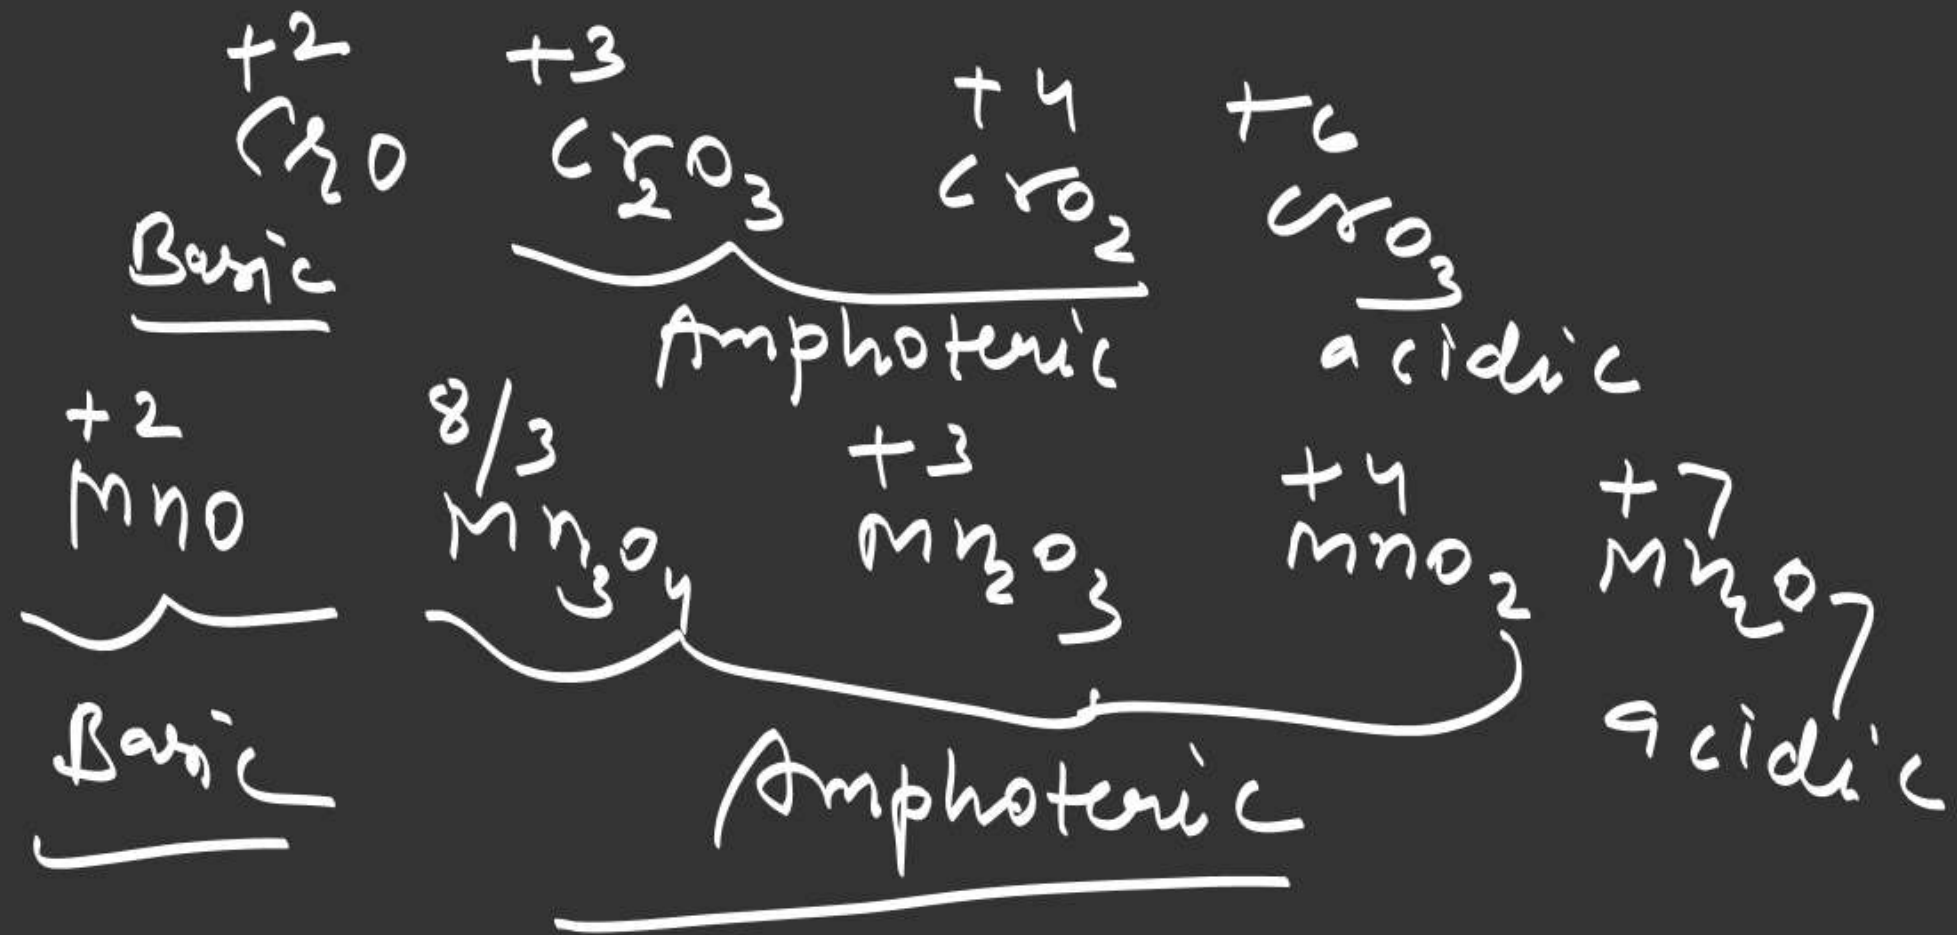 +2 +3 +4 +6
CrO Cr2O3 CrO2 CrO3
Basic Amphoteric acidic
+2 8/3 +3 +4 +7
MnO Mn3O4 Mn2O3 MnO2 Mn2O7
Basic Amphoteric acidic